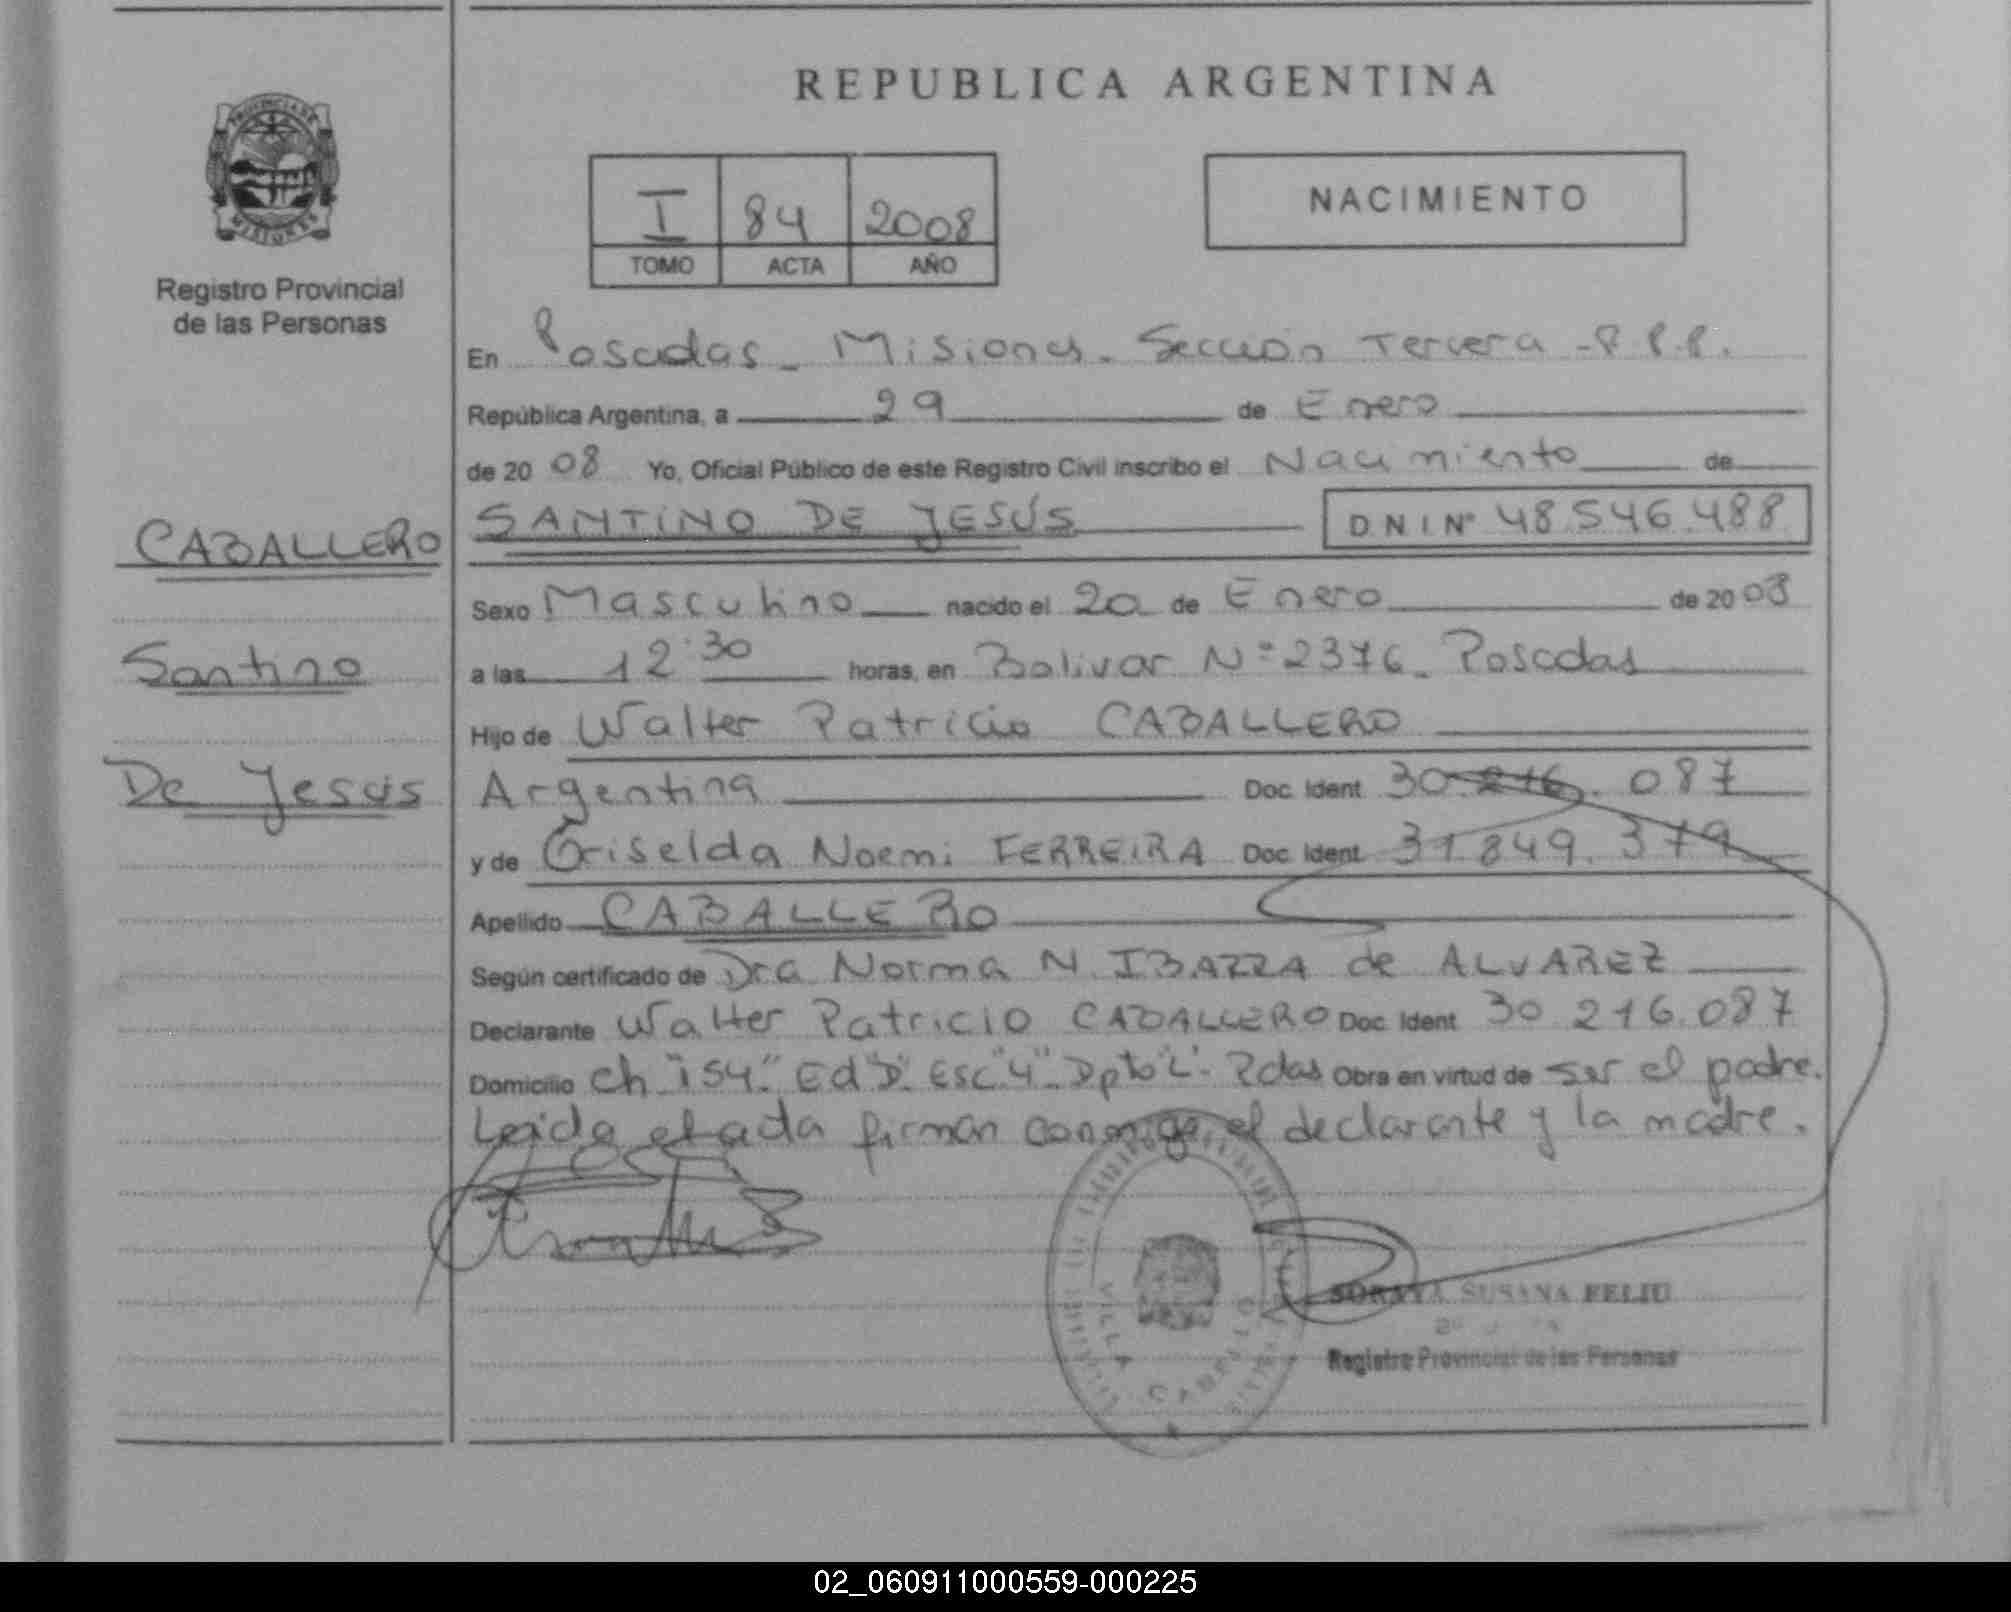 REPUBLICA ARGENTINA
PROVINCIA DE
MISIONES
Registro Provincial
de las Personas
I 84 2008
TOMO ACTA AÑO
NACIMIENTO
En Posadas - Misiones - Sección Tercera - R.P.P.
República Argentina, a 29 de Enero
de 2008 Yo, Oficial Público de este Registro Civil inscribo el Nacimiento de
SANTINO DE JESÚS DNI Nº 48.546.488
CABALLERO
Santino
De Jesús
Sexo Masculino nacido el 20 de Enero de 2008
a las 12:30 horas, en Bolivar Nº 2376 - Posadas
Hijo de Walter Patricio CABALLERO
Argentina Doc. Ident. 30.216.087
y de Griselda Noemi FERREIRA Doc. Ident. 31.849.379
Apellido CABALLERO
Según certificado de Dra Norma N. de ALVAREZ
Declarante Walter Patricio CABALLERO Doc. Ident. 30.216.087
Domicilio Ch "154" Ed "D" Esc "4" Dpto "L" - Pdas Obra en virtud de ser el padre.
Leida el acta firman conmigo el declarante y la madre.
VILLA CABELLO
SORAYA SUSANA FELIU
Registro Provincial de las Personas
02_060911000559-000225